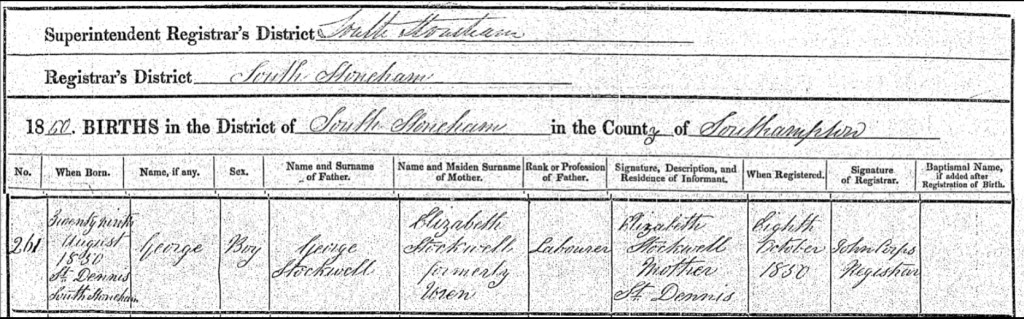 Superintendent Registrar's District South Stoneham
Registrar's District South Stoneham
1850. BIRTHS in the District of South Stoneham in the County of Southampton
No. When Born. Name, if any. Sex. Name and Surname of Father. Name and Maiden Surname of Mother. Rank or Profession of Father. Signature, Description, and Residence of Informant. When Registered. Signature of Registrar. Baptismal Name, if added after Registration of Birth.
261
Twenty ninth
August
1850
St. Dennis
South Stoneham
George
Boy
George
Stockwell
Elizabeth
Stockwell
formerly
Labourer
Elizabeth
Stockwell
Mother
St. Dennis
Eighth
October
1850
John
Registrar